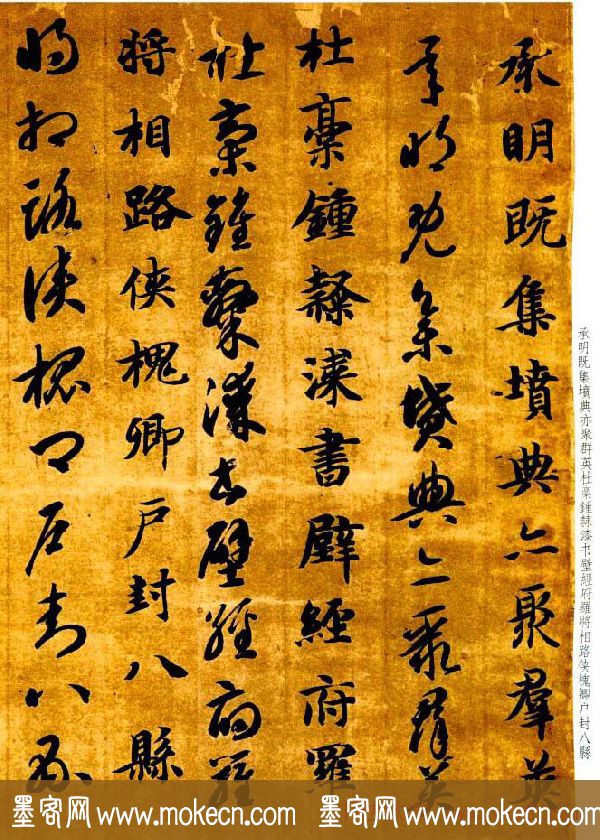 承明既集墳典亦聚羣英
承明既集墳典亦聚群英
杜稾鍾隸漆書壁經府羅
杜稾鍾隸漆書壁經府羅
將相路俠槐卿戶封八縣
將相路俠槐卿戶封八縣
承明既集墳典亦聚群英杜稾鍾隸漆书壁經府羅將相路俠槐卿户封八縣
墨客网 www.mokecn.com 墨客网 www.mokecn.com